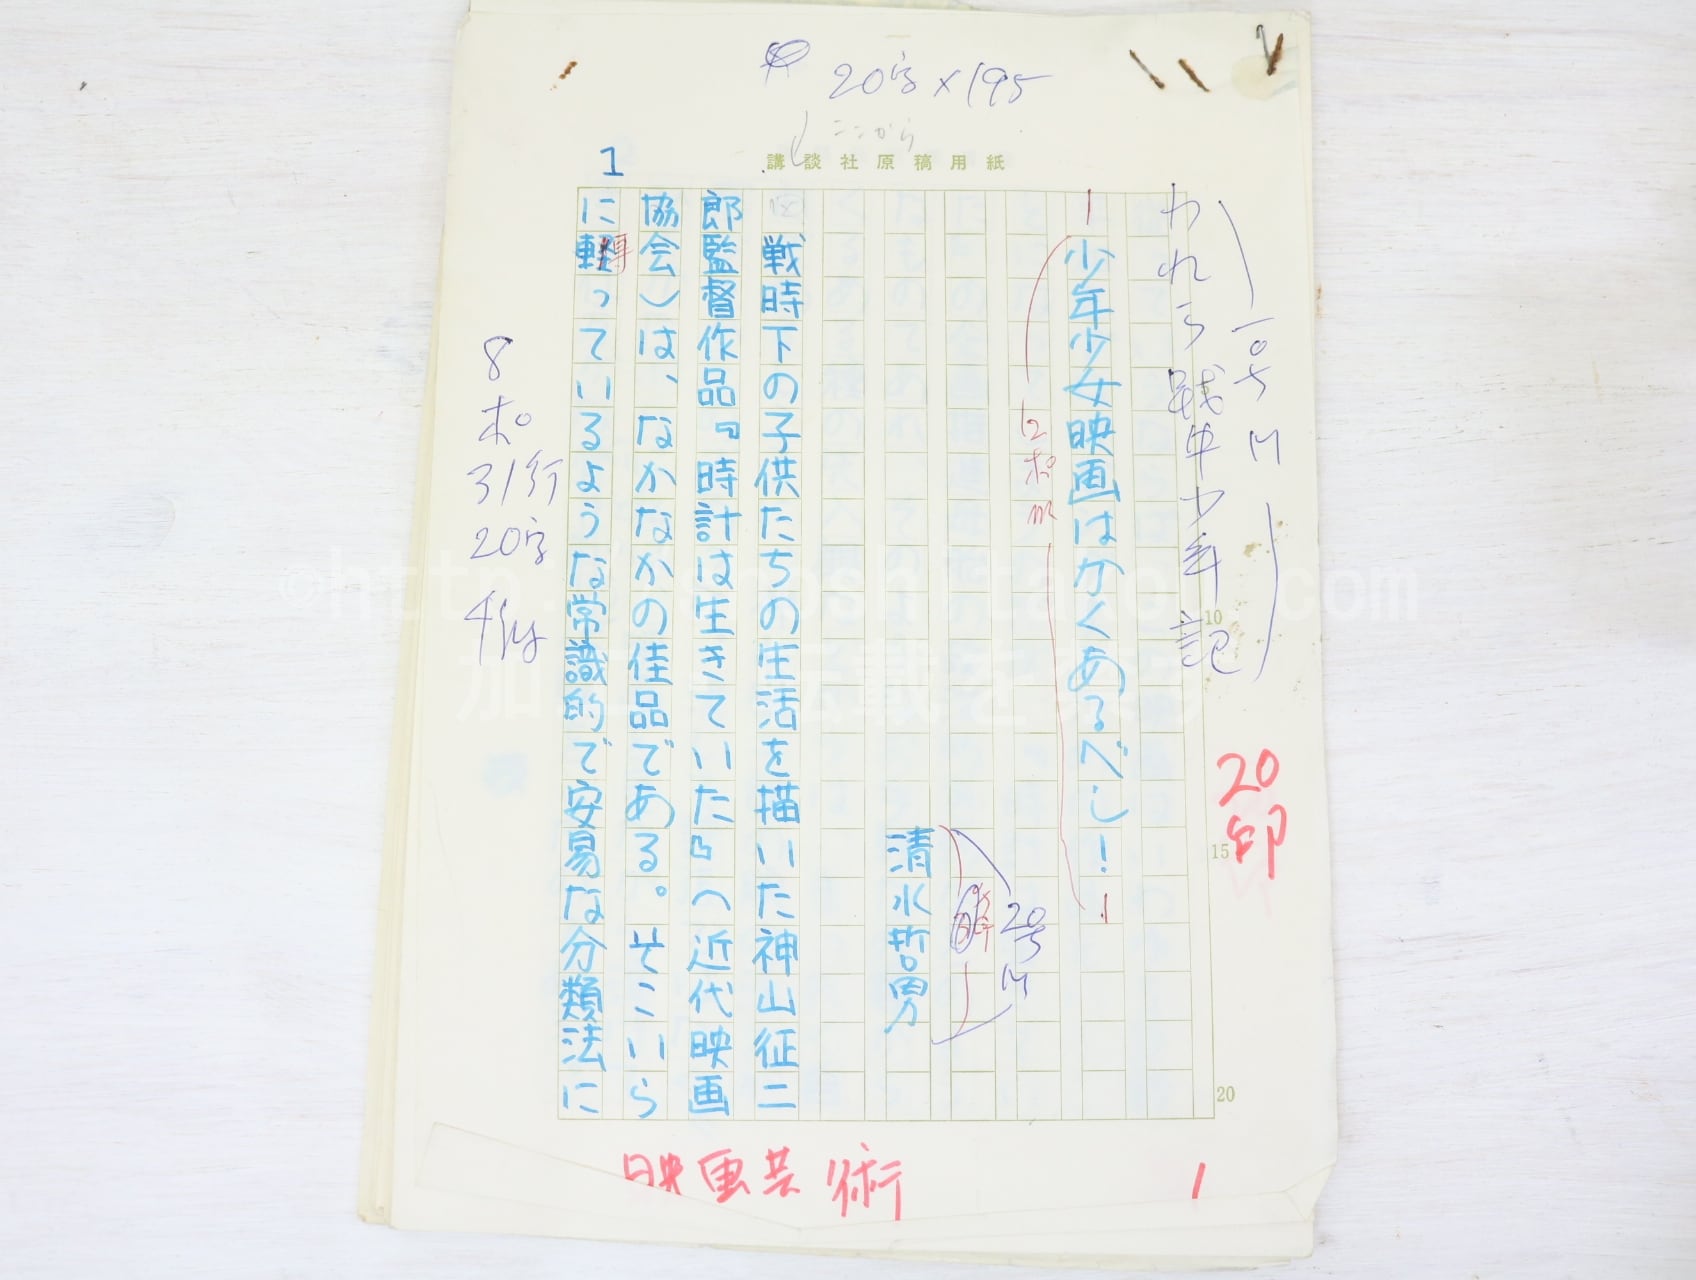 20字×195
ここから
講談社原稿用紙
1
われら戦中少年記
少年少女映画はかくあるべし！
12ポ
清水哲男
戦時下の子供たちの生活を描いた神山征二
郎監督作品『時計は生きていた』（近代映画
協会）は、なかなかの佳品である。そこいら
に転っているような常識的で安易な分類法に
8ポ
31行
20字
10
15
20
20印
映画芸術
1